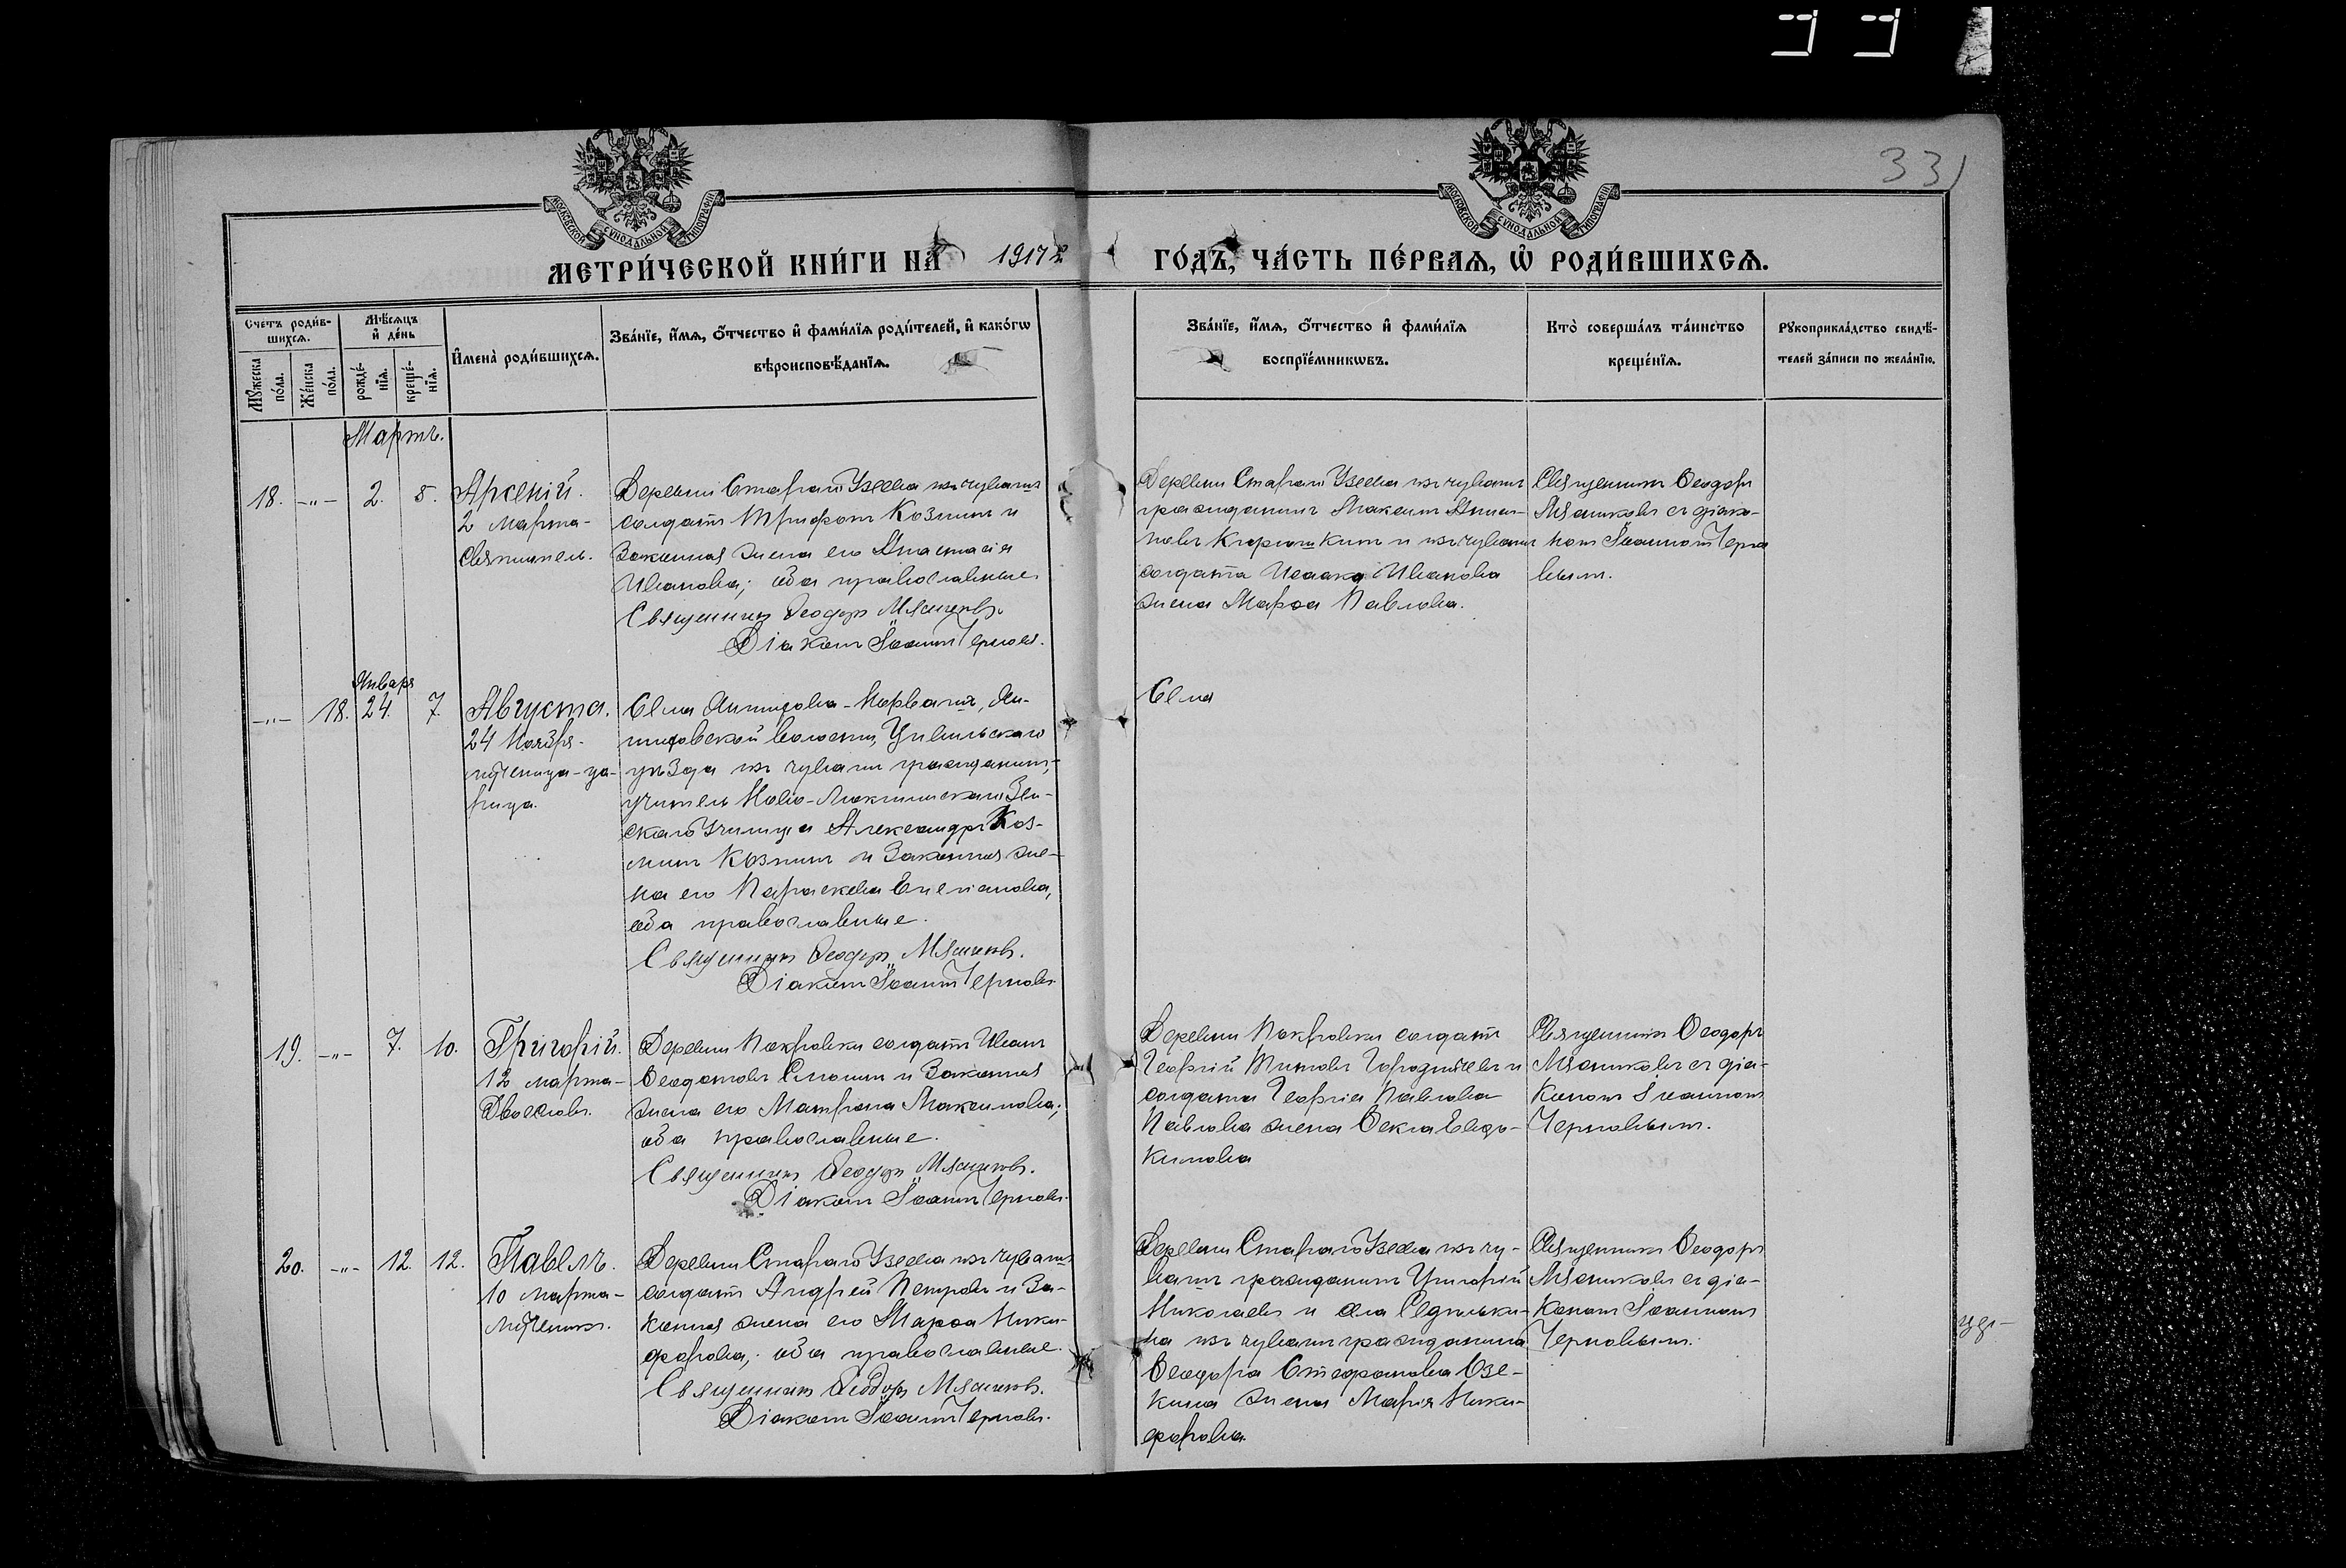 331
МОСКОВСКОЙ СѴНОДАЛЬНОЙ ТИПОГРАФІИ
МОСКОВСКОЙ СѴНОДАЛЬНОЙ ТИПОГРАФІИ
МЕТРИ́ЧЕСКОЙ КНИ́ГИ НА 1917 г. ГО́ДЪ, ЧА́СТЬ ПЕ́РВАЯ, Ѡ РОДИ́ВШИХСЯ.
Счетъ роди́в-
шихся.
Мꙋжеска
по́ла.
Же́нска
по́ла.
Мѣ́сяцъ
и҆ де́нь
рожде́-
нїя.
креще́-
нїя.
И҆мена̀ роди́вшихся.
Зва́нїе, и҆́мя, ѻ҆́тчество и҆ фами́лїя роди́телей, и҆ како́гѡ
вѣроисповѣ́данїя.
Зва́нїе, и҆́мя, ѻ҆́тчество и҆ фами́лїя
воспрїе́мникѡвъ.
Кто̀ соверша́лъ та́инство
креще́нїя.
Рꙋкоприкла́дство свидѣ́-
телей за́писи по жела́нїю.
Мартъ.
18. -„- 2. 5.
Арсеній.
2 марта-
Святитель.
Деревни Стараго Узеева изъ чувашъ
солдатъ Трифонъ Козминъ и
законная жена его Анастасія
Иванова; оба православные.
Священникъ Ѳеодоръ Мясниковъ.
Діаконъ Іоаннъ Черновъ.
Деревни Стараго Узеева изъ чувашъ
гражданинъ Максимъ
и изъ чувашъ
солдата Исаака Иванова
жена Марѳа Павлова.
Священникъ Ѳеодоръ
Мясниковъ съ діако-
номъ Іоанномъ Черно
вымъ.
Января
-„- 18. 24. 7.
Августа.
24 Ноября-
мученица-ца-
рица.
Села -Норваш, Ян-
волости, Цивильскаго
уѣзда изъ чувашъ гражданинъ,
учитель Ново- Зем-
скаго училища Александръ Коз-
минъ Козминъ и законная же-
на его Параскева Емеліанова,
оба православные.
Священникъ Ѳеодоръ Мясниковъ.
Діаконъ Іоаннъ Черновъ.
Села
19. -„- 7. 10.
Григорій.
12 марта-
Двоесловъ.
Деревни Покровки солдатъ Иванъ
Ѳеодотовъ и законная
жена его Матрона Максимова;
оба православные.
Священникъ Ѳеодоръ Мясниковъ.
Діаконъ Іоаннъ Черновъ.
Деревни Покровки солдатъ
Георгій Титовъ и
солдата Георгія Павлова
Павлова жена Ѳекла Евдо-
кимова
Священникъ Ѳеодоръ
Мясниковъ съ діа-
кономъ Іоанномъ
Черновымъ.
20. -„- 12. 12.
Павелъ.
10 марта-
мученикъ.
Деревни Стараго Узеева изъ чувашъ
солдатъ Андрей Петровъ и за-
конная жена его Марѳа Ники-
форова; оба православные.
Священникъ Ѳеодоръ Мясниковъ.
Діаконъ Іоаннъ Черновъ.
Деревни Стараго Узеева изъ чу-
вашъ гражданинъ Григорій
Николаевъ и села Седельки-
на изъ чувашъ гражданина
Ѳеодора Стефанова Озе-
кина жена Марія Ники-
форова.
Священникъ Ѳеодоръ
Мясниковъ съ діа-
кономъ Іоанномъ
Черновымъ.